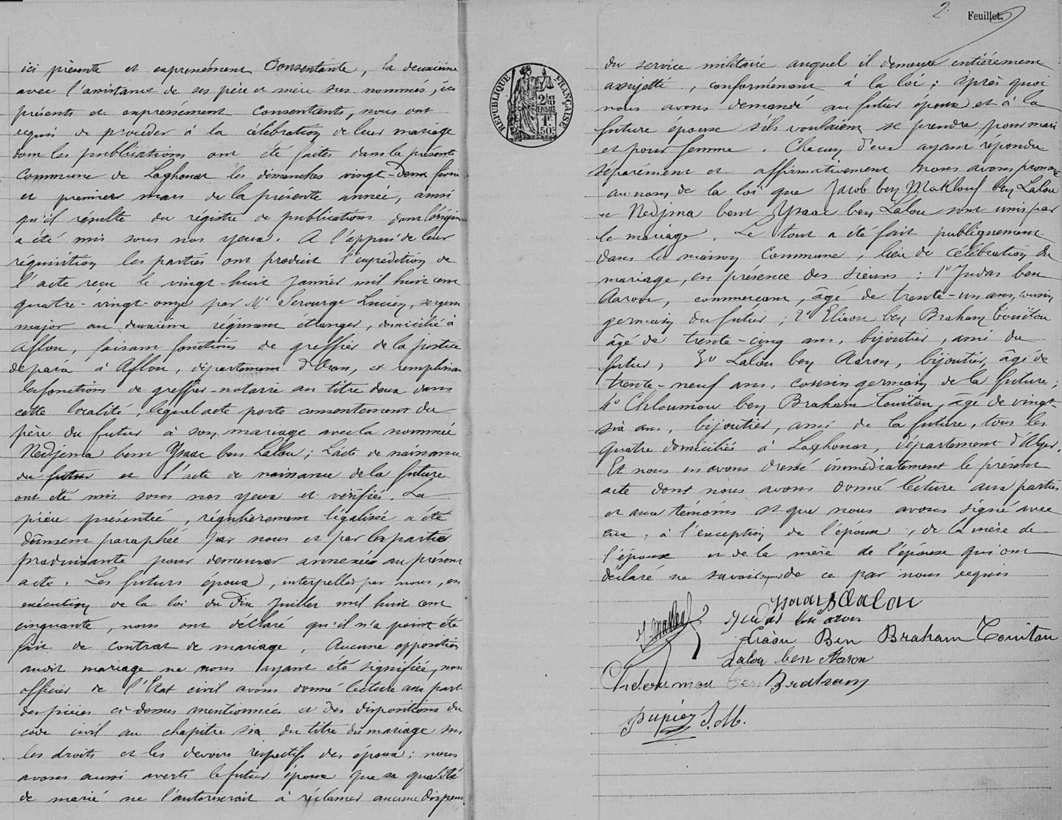 ici présente et expressément Consentante, la deuxième
avec l'assistance de ses père et mère sus nommés, ici
présents et expressément Consentants, nous ont
requis de procéder à la célébration de leur mariage
dont les publications ont été faites dans la présente
Commune de Laghouat les dimanches vingt-deux février
et premier mars de la présente année, ainsi
qu'il résulte du registre de publications dont l'original
a été mis sous nos yeux. A l'appui de leur
réquisition les parties ont produit l'expédition de
l'acte reçu le vingt-huit janvier mil huit cent
quatre-vingt-onze par Mr Serourge Lucien, sergent
major au deuxième régiment étranger, domicilié à
Aflou, faisant fonctions de greffier de la justice
de paix à Aflou, département d'Oran, et remplissant
les fonctions de greffier-notaire au titre deux dans
cette localité, lequel acte porte consentement du
père du futur à son mariage avec la nommée
Nedjema bent Ysaac ben Lalou ; L'acte de naissance
du futur et l'acte de naissance de la future
ont été mis sous nos yeux et vérifiés. La
pièce présentée, régulièrement légalisée a été
dûment paraphée par nous et par la partie
produisante pour demeurer annexée au présent
acte. Les futurs époux, interpellés par nous, en
exécution de la loi du Dix Juillet mil huit cent
cinquante, nous ont déclaré qu'il n'a point été
fait de contrat de mariage, Aucune opposition
audit mariage ne nous ayant été signifiée, nous
officier de l'État civil avons donné lecture aux parties
des pièces ci-dessus mentionnées et des dispositions du
code civil au chapitre six du titre du mariage sur
les droits et les devoirs respectifs des époux ; nous
avons aussi averti le futur époux que sa qualité
de marié ne l'autoriserait à réclamer aucune dispense
2 Feuillet.
RÉPUBLIQUE FRANÇAISE
du service militaire auquel il demeure entièrement
assujetti, conformément à la loi ; Après quoi
nous avons demandé au futur époux et à la
future épouse s'ils voulaient se prendre pour mari
et pour femme. Chacun d'eux ayant répondu
séparément et affirmativement Nous avons prononcé
au nom de la loi que Jacob ben Maklouf ben Lalou
et Nedjma bent Ysaac ben Lalou sont unis par
le mariage. Le tout a été fait publiquement
dans la maison Commune, lieu de célébration du
mariage, en présence des sieurs : 1° Judas ben
Aaron, commerçant, âgé de trente-un ans, cousin
germain du futur ; 2° Eliaou ben Braham Touitou
âgé de trente-cinq ans, bijoutier, ami du
futur, 3° Lalou ben Aaron, bijoutier, âgé de
trente-neuf ans, cousin germain de la future ;
4° Chloumou ben Braham Touitou, âgé de vingt
six ans, bijoutier, ami de la future, tous les
quatre domiciliés à Laghouat, département d'Alger.
Et nous en avons dressé immédiatement le présent
acte dont nous avons donné lecture aux parties
et aux témoins et que nous avons signé avec
eux, à l'exception de l'épouse, de la mère de
l'époux et de la mère de l'épouse qui ont
déclaré ne savoir signer de ce par nous requis
Lalou
Judas ben aron
Liaou Ben Braham Touitou
Lalou ben Aaron
Chloumou ben Braham